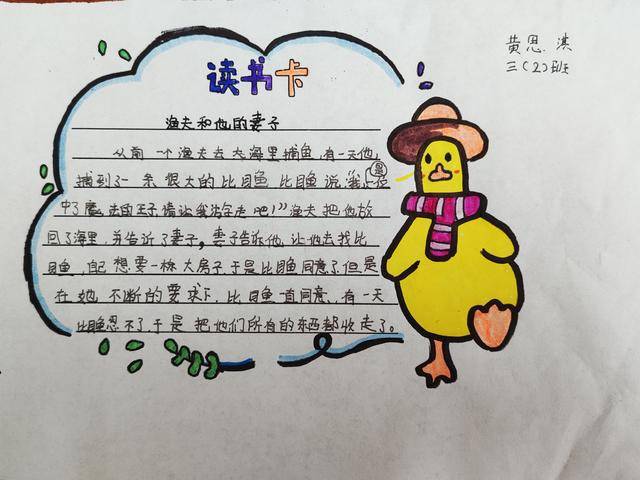 黄恩淇
三(2)班
读书卡
渔夫和他的妻子
从前一个渔夫去大海里捕鱼,有一天他,
捕到了一条很大的比目鱼,比目鱼说,"我是
中了魔法的王子请让我游走吧!"渔夫把他放
回了海里,并告诉了妻子,妻子告诉他,让他去找比
目鱼,自己想要一栋大房子,于是比目鱼同意了,但是
在她不断的要求下,比目鱼一直同意,有一天
比目鱼忍不了,于是把他们所有的东西都收走了。